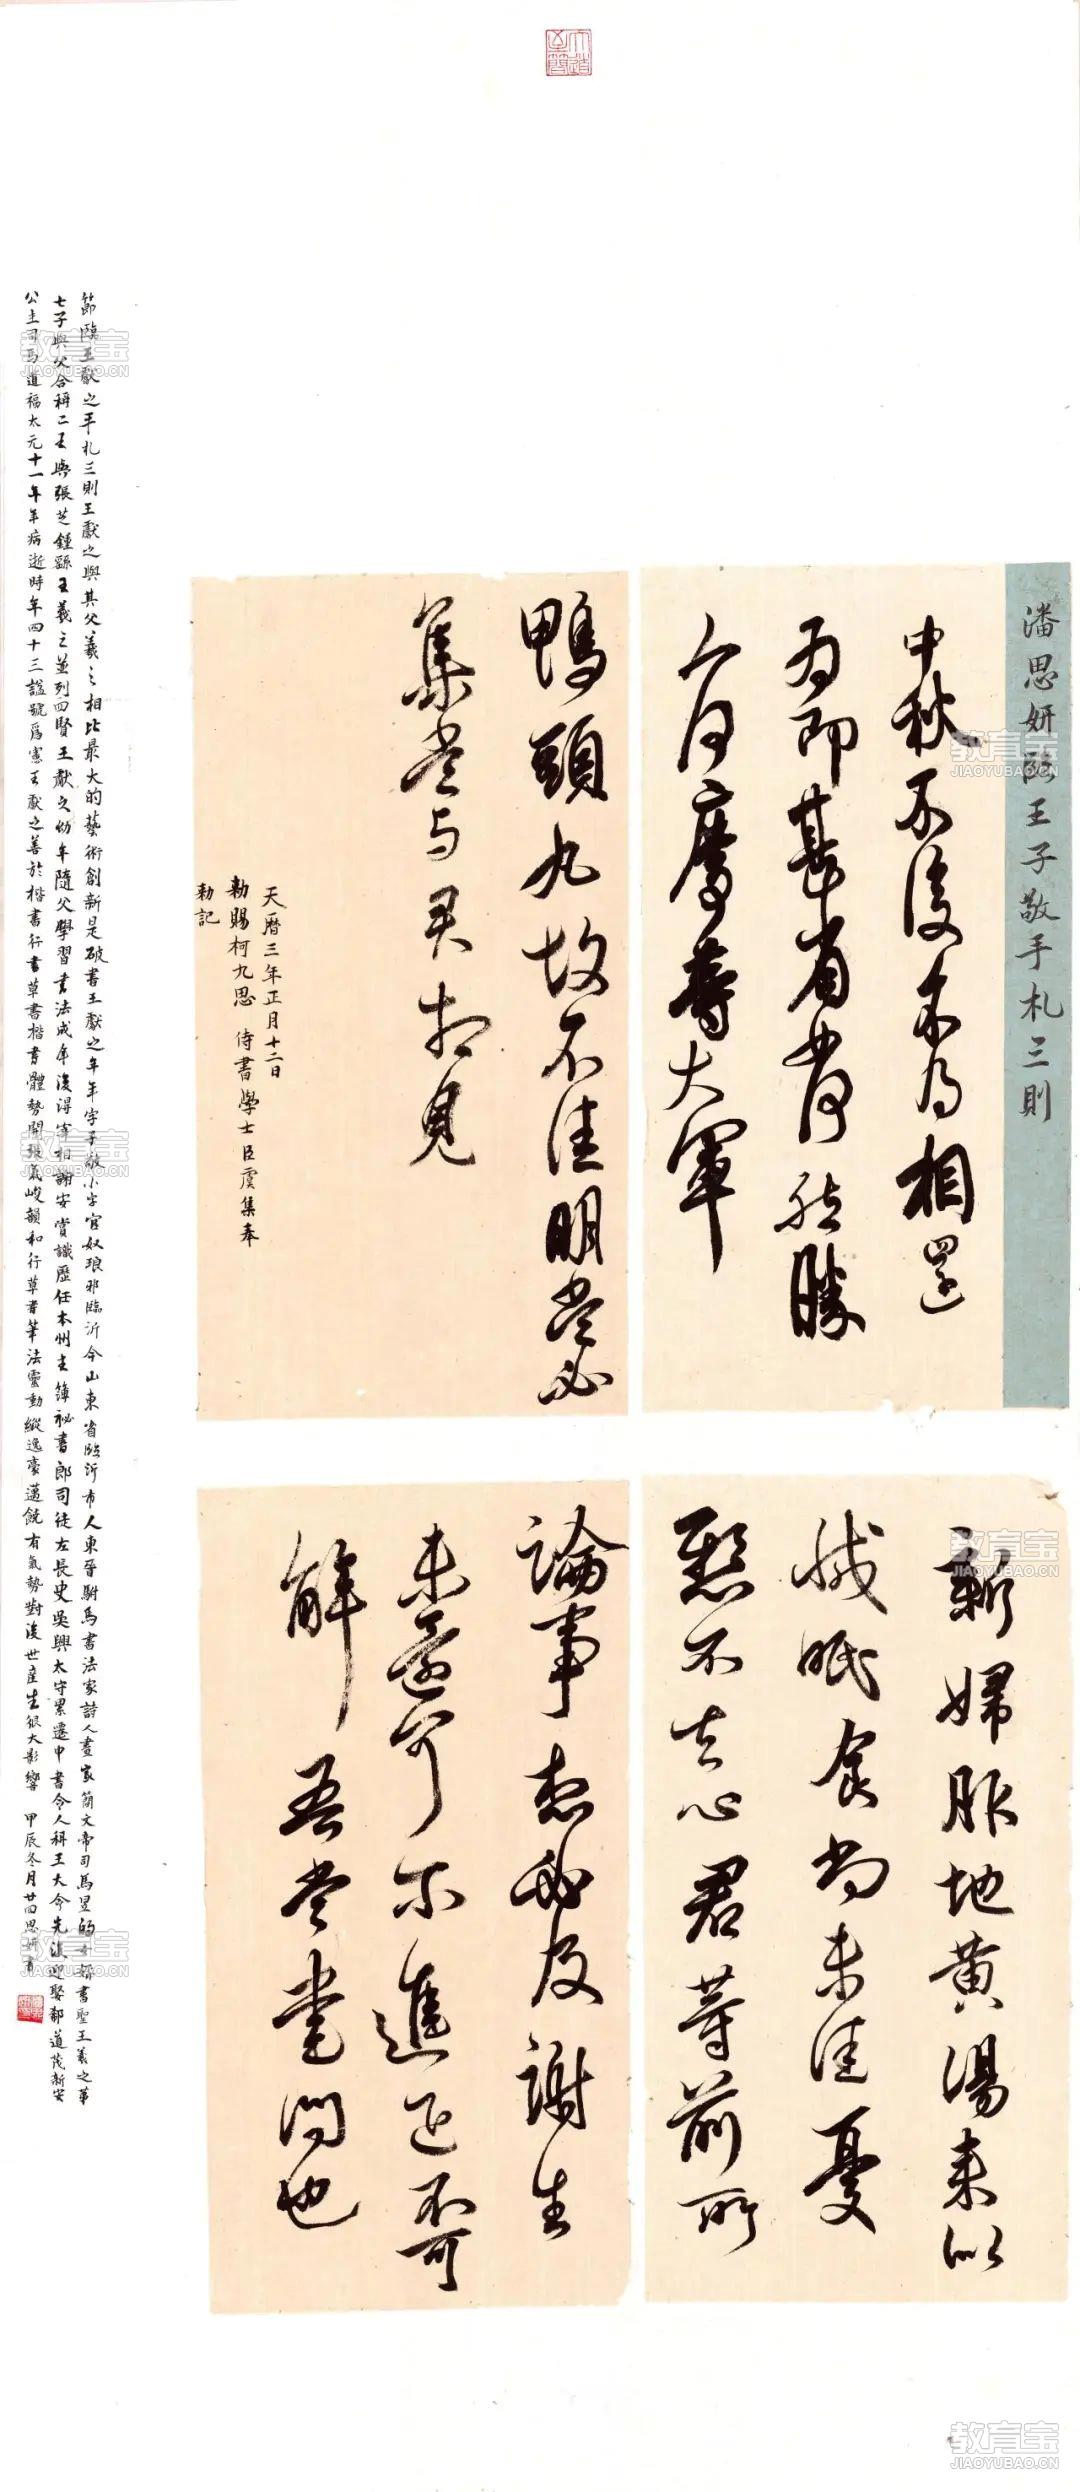 潘思妍臨王子敬手札三則
中秋不復不得相還
為即甚省如何然勝
人何慶等大軍
鴨頭丸故不佳明當必
集當與君相見
天曆三年正月十二日
勑賜柯九思 侍書學士臣虞集奉
勅記
新婦服地黃湯來似
減眠食尚未佳憂
懸不去心君等前所
論事想必及謝生
未還可尔進退不可
解吾當書問也
節臨王獻之手札三則王獻之與其父羲之相比最大的藝術創新是破書王獻之年字子敬小字官奴琅邪臨沂今山東省臨沂市人東晉駙馬書法家詩人畫家簡文帝司馬昱的女婿書聖王羲之第
七子與父合稱二王與張芝鍾繇王羲之並列四賢王獻之幼年隨父學習書法成年後得宰相謝安賞識歷任本州主簿秘書郎司徒左長史吳興太守累遷中書令人稱王大令先後迎娶郗道茂新安
公主司馬道福太元十一年年病逝時年四十三諡號爲憲王獻之善於楷書行書草書楷書體勢開張氣峻韻和行草書筆法靈動縱逸豪邁饒有氣勢對後世產生很大影響 甲辰冬月廿四思妍書
教育宝
JIAOYUBAO.CN
教育宝
JIAOYUBAO.CN
教育宝
JIAOYUBAO.CN
教育宝
JIAOYUBAO.CN
教育宝
JIAOYUBAO.CN
教育宝
JIAOYUBAO.CN